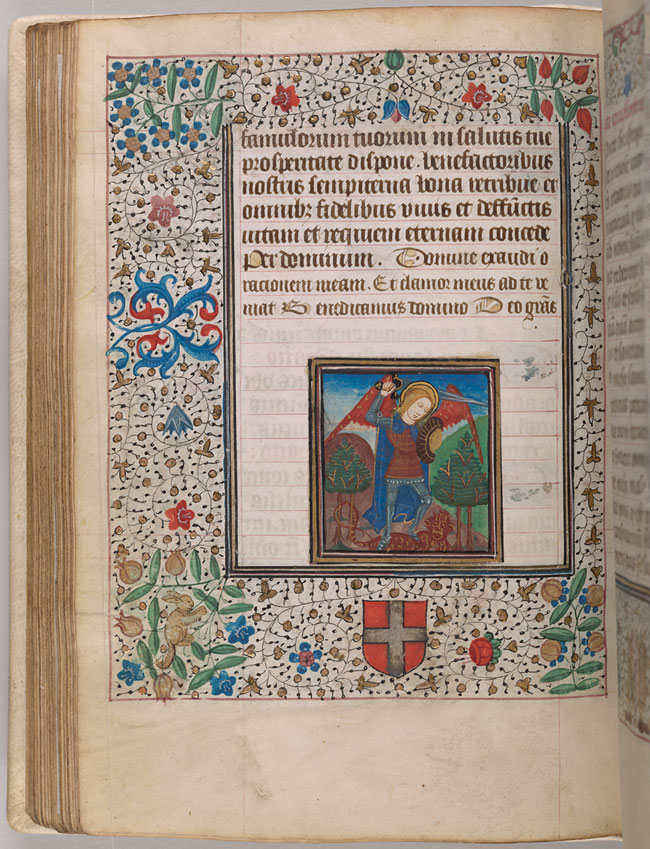 famulorum tuorum in salutis tue
prosperitate dispone. benefactoribus
nostris sempiterna bona retribue et
omnibz fidelibus viuis et deffunctis
vitam et requiem eternam concede
Per dominum. Domine exaudi o
rationem meam. Et clamor meus ad te ve
niat Benedicamus domino Deo grās